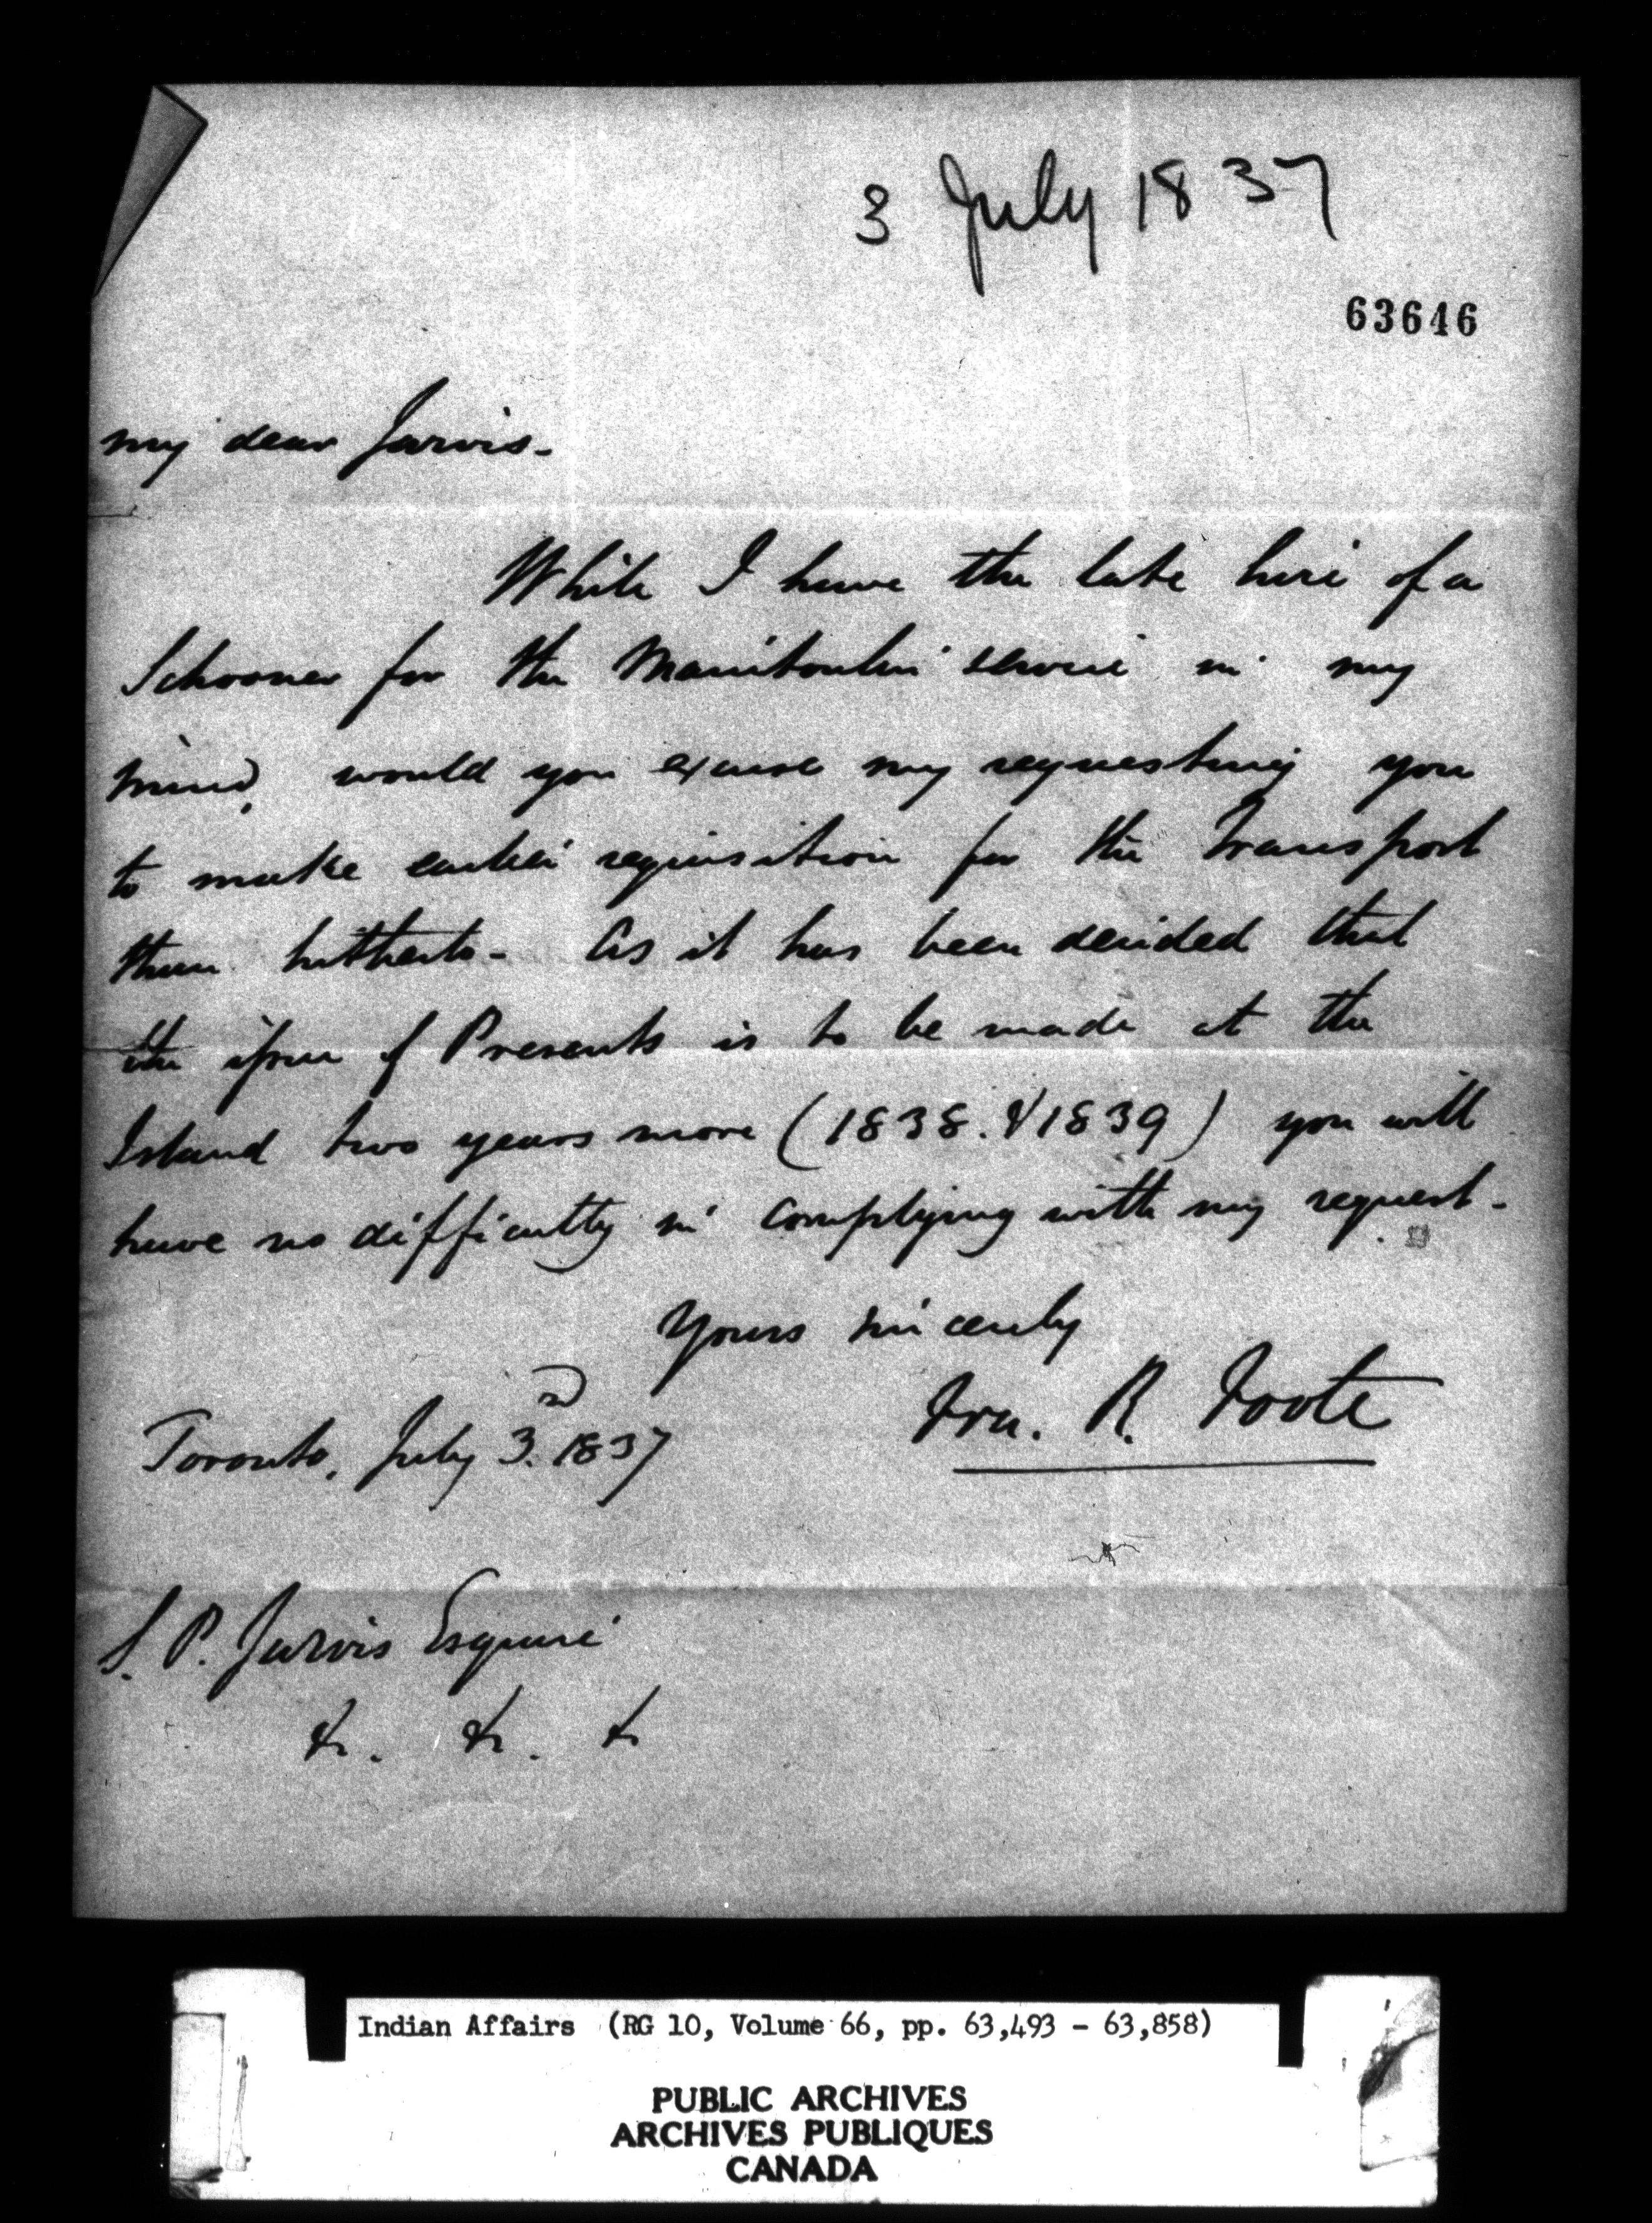 3 July 1837
63646
my dear Jarvis.
While I have the late hire of a
Schooner for the Manitoulin service in my
mind, would you excuse my requesting you
to make earlier requisition for the Transport
than hitherto. As it has been decided that
the issue of Presents is to be made at the
Island two years more (1838. & 1839) you will
have no difficulty in complying with my request.
Yours sincerely
Fra. R. Foote
Toronto, July 3rd. 1837
S. P. Jarvis Esquire
&c. &c. &c
Indian Affairs (RG 10, Volume 66, pp. 63,493 - 63,858)
PUBLIC ARCHIVES
ARCHIVES PUBLIQUES
CANADA